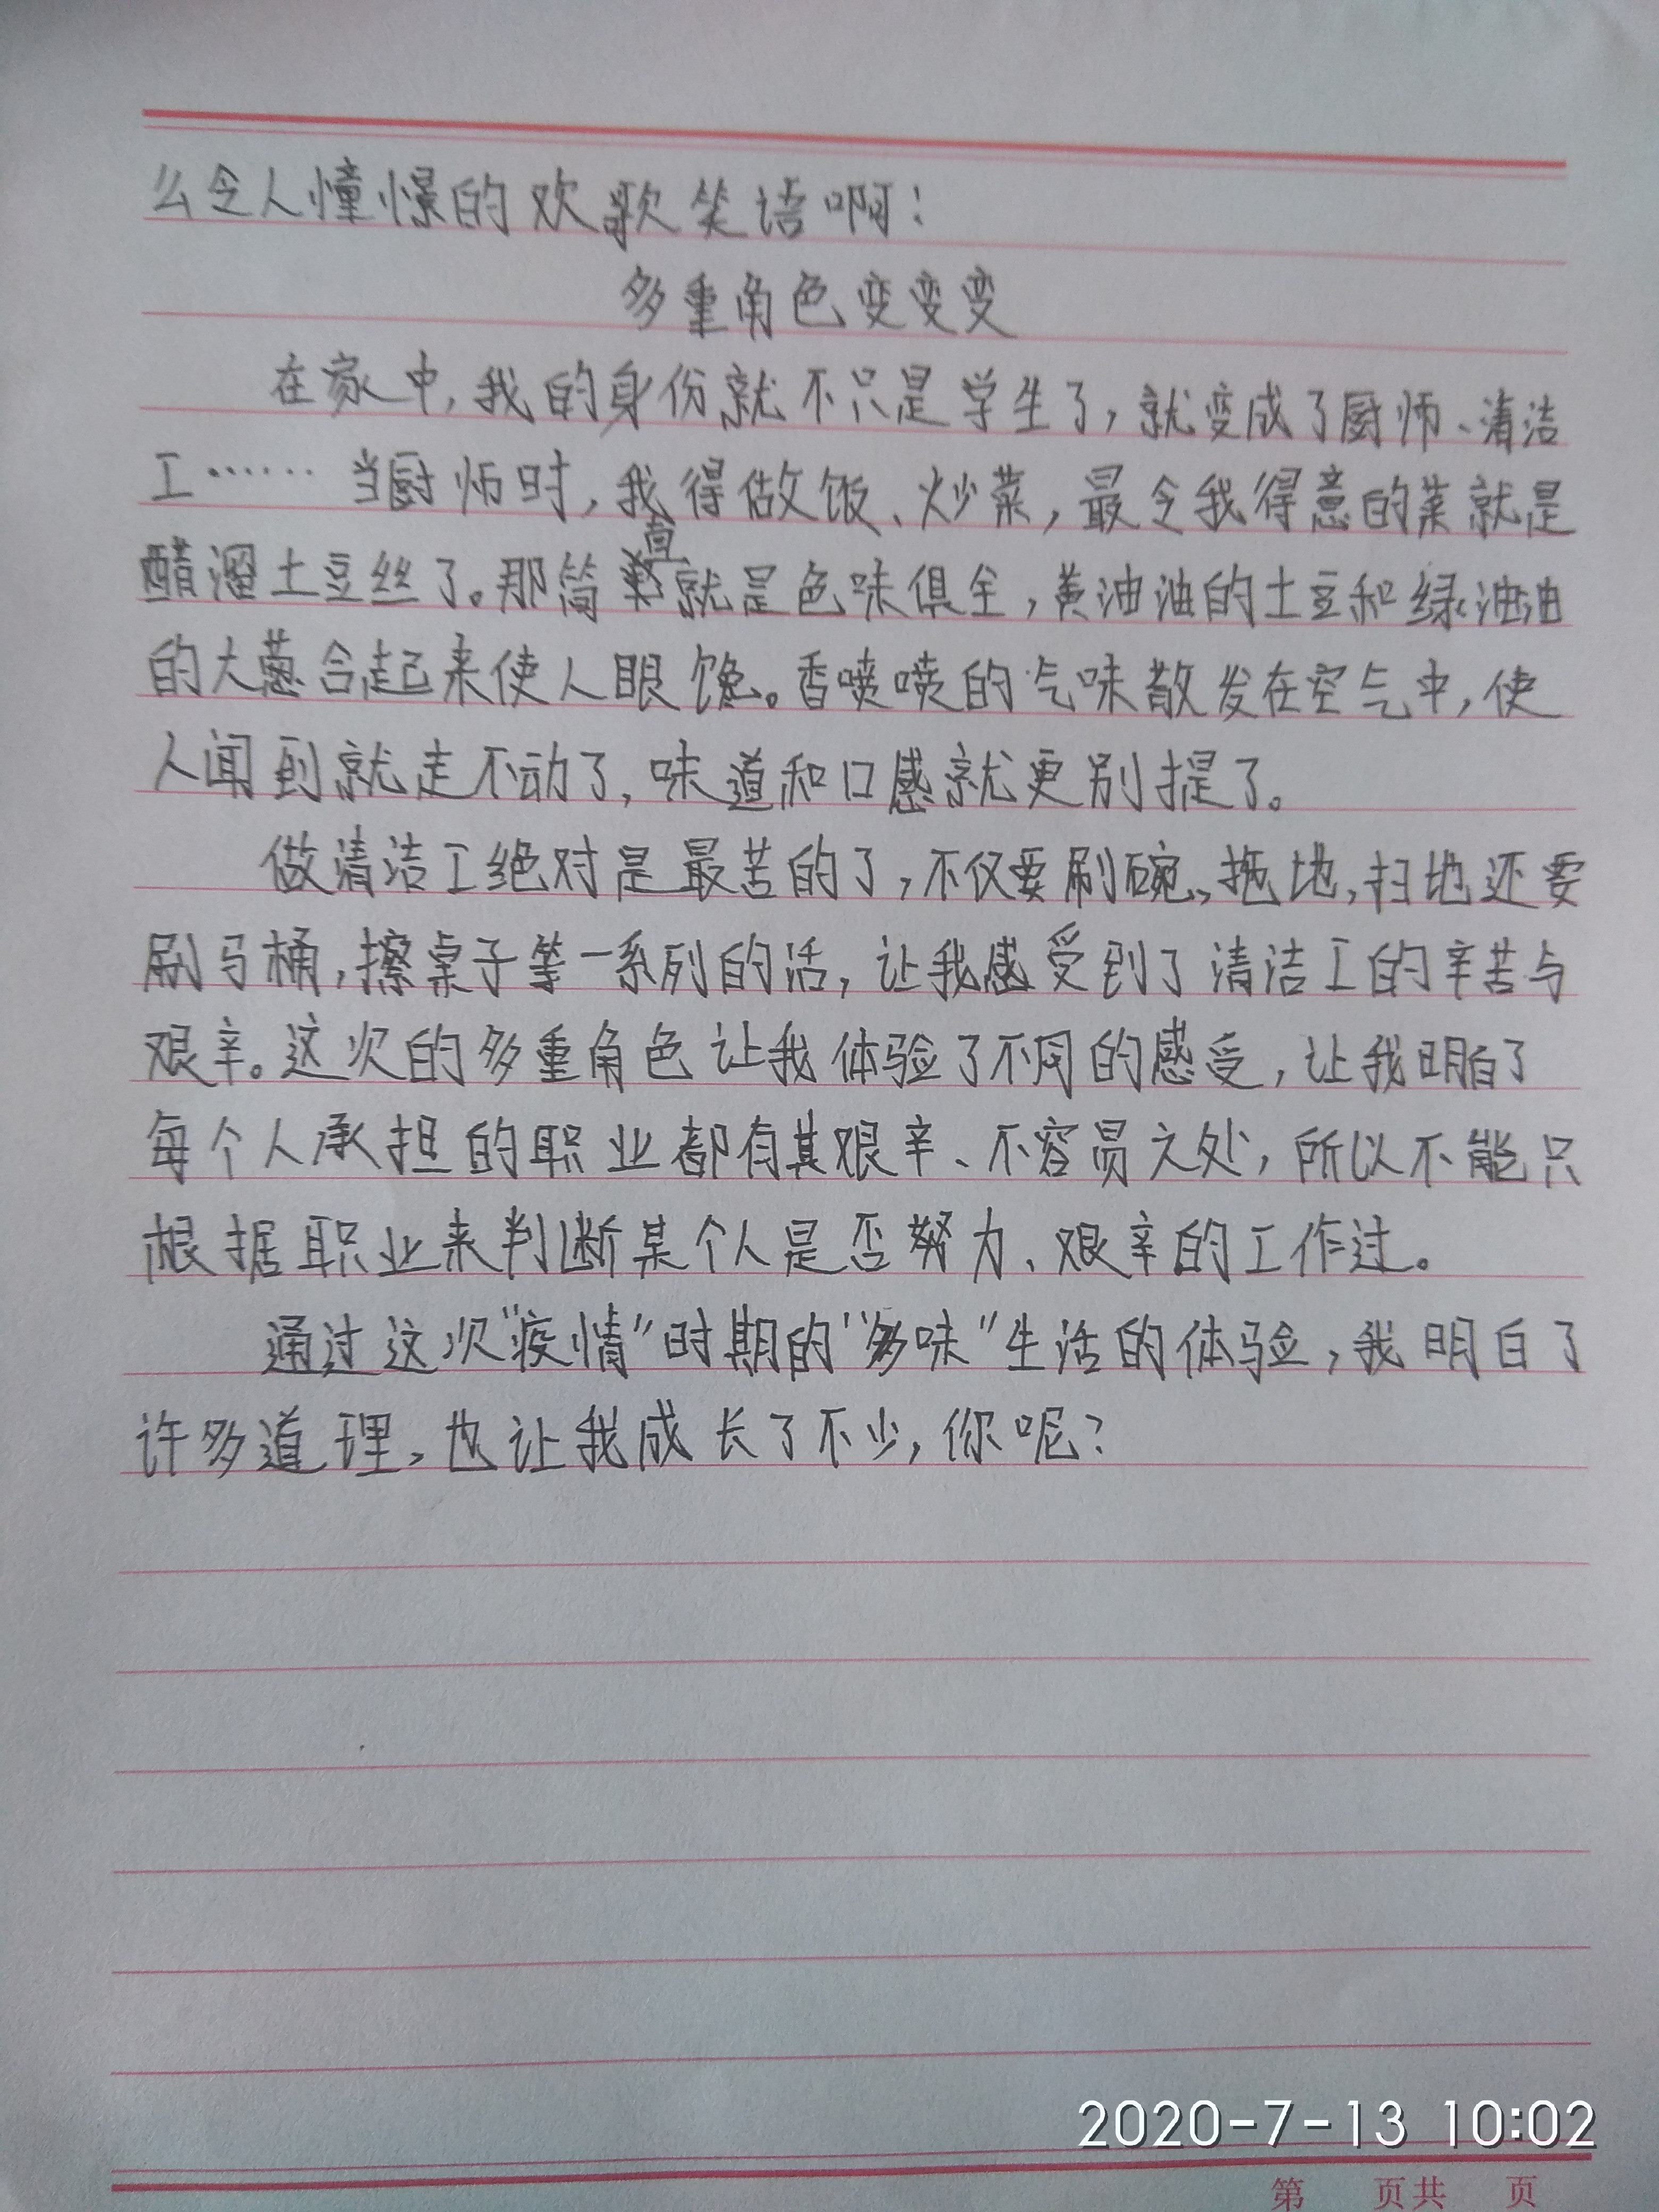 么令人憧憬的欢歌笑语啊！
多重角色变变变
在家中，我的身份就不只是学生了，就变成了厨师、清洁
工……当厨师时，我得做饭、炒菜，最令我得意的菜就是
醋溜土豆丝了。那简直就是色味俱全，黄油油的土豆和绿油油
的大葱合起来使人眼馋。香喷喷的气味散发在空气中，使
人闻到就走不动了，味道和口感就更别提了。
做清洁工绝对是最苦的了，不仅要刷碗、拖地，扫地还要
刷马桶，擦桌子等一系列的活，让我感受到了清洁工的辛苦与
艰辛。这次的多重角色让我体验了不同的感受，让我明白了
每个人承担的职业都有其艰辛、不容易之处，所以不能只
根据职业来判断某个人是否努力、艰辛的工作过。
通过这次“疫情”时期的“多味”生活的体验，我明白了
许多道理，也让我成长了不少，你呢？
2020-7-13 10:02
第 页共 页